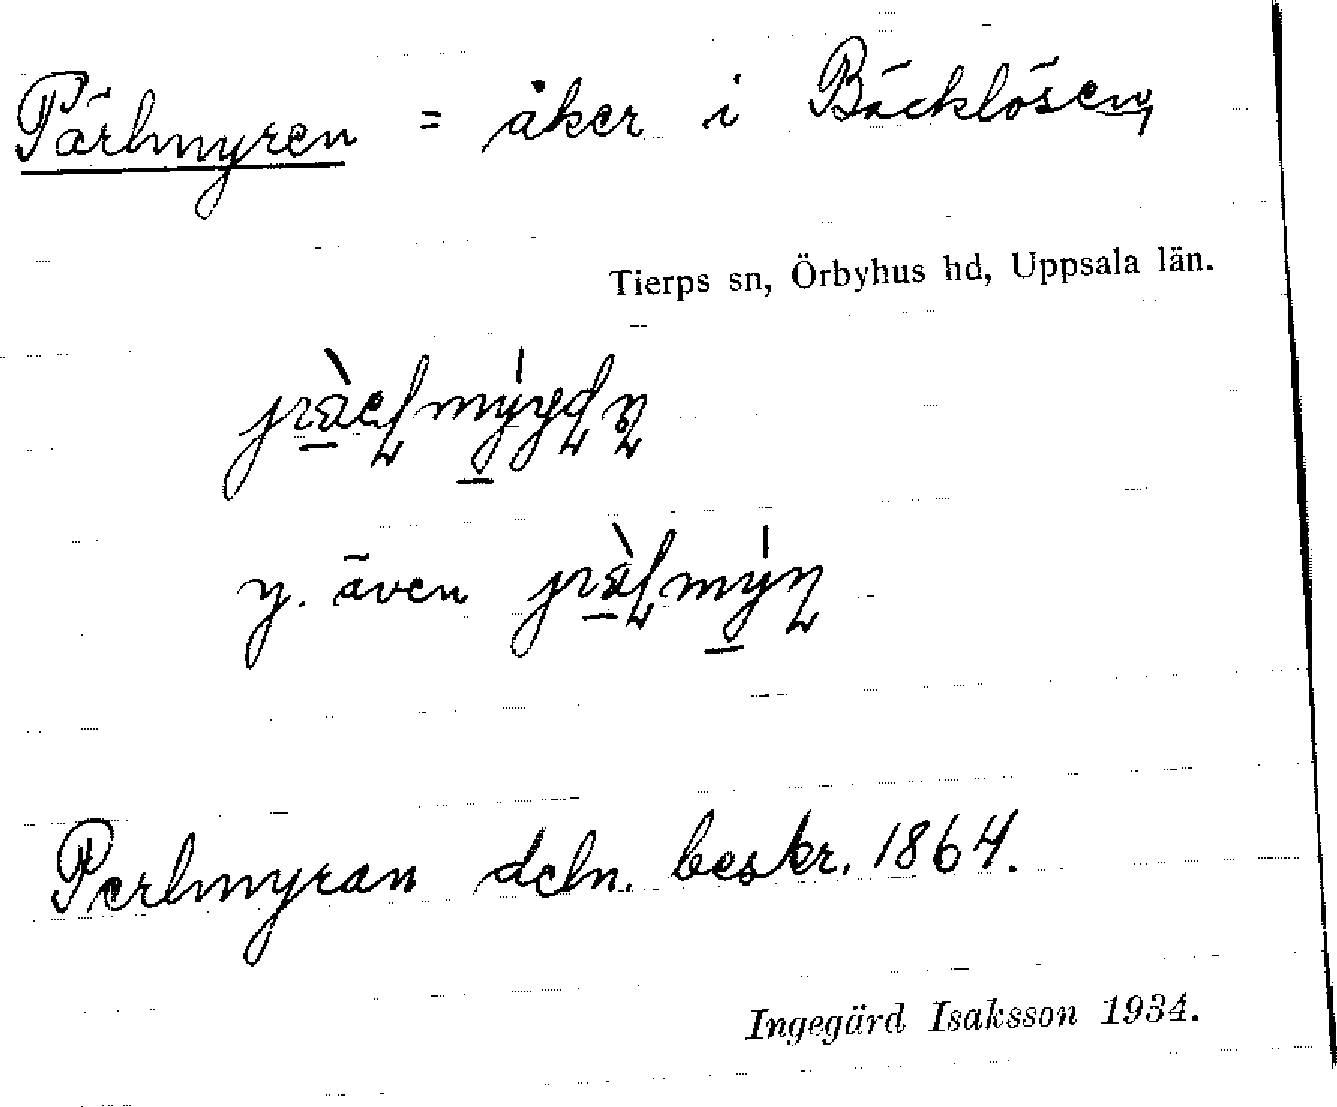 Pärlmyren = åker i Bäcklösen,
Tierps sn, Örbyhus hd, Uppsala län.
y. även
Perlmyran deln. beskr. 1864.
Ingegärd Isaksson 1934.